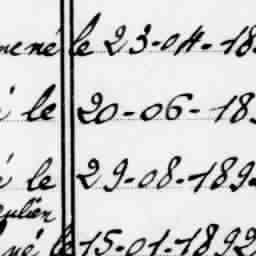 né le 23-04-18
é le 20-06-18
é le 29-08-189
né le 15-01-1892